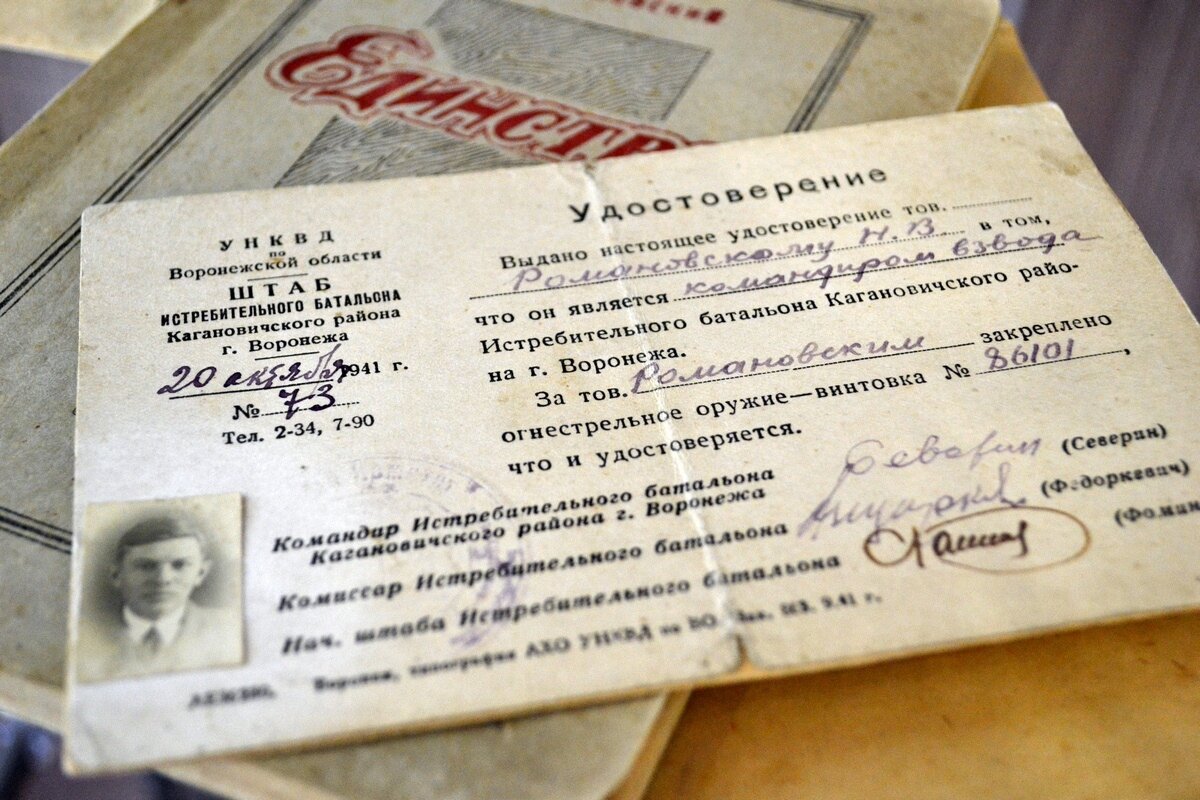 Единств
УНКВД
по
Воронежской области
ШТАБ
ИСТРЕБИТЕЛЬНОГО БАТАЛЬОНА
Кагановичского района
г. Воронежа
20 октября 1941 г.
№ 73
Тел. 2-34, 7-90
Удостоверение
Выдано настоящее удостоверение тов.
Романовскому Н.В. в том,
что он является командиром взвода
Истребительного батальона Кагановичского райо-
на г. Воронежа.
За тов. Романовским закреплено
огнестрельное оружие—винтовка № 86101,
что и удостоверяется.
Командир Истребительного батальона
Кагановичского района г. Воронежа Северин (Северин)
Комиссар Истребительного батальона (Федоркевич)
Нач. штаба Истребительного батальона (Фомин
Воронеж, типография АХО УНКВД по ВО 9.41 г.